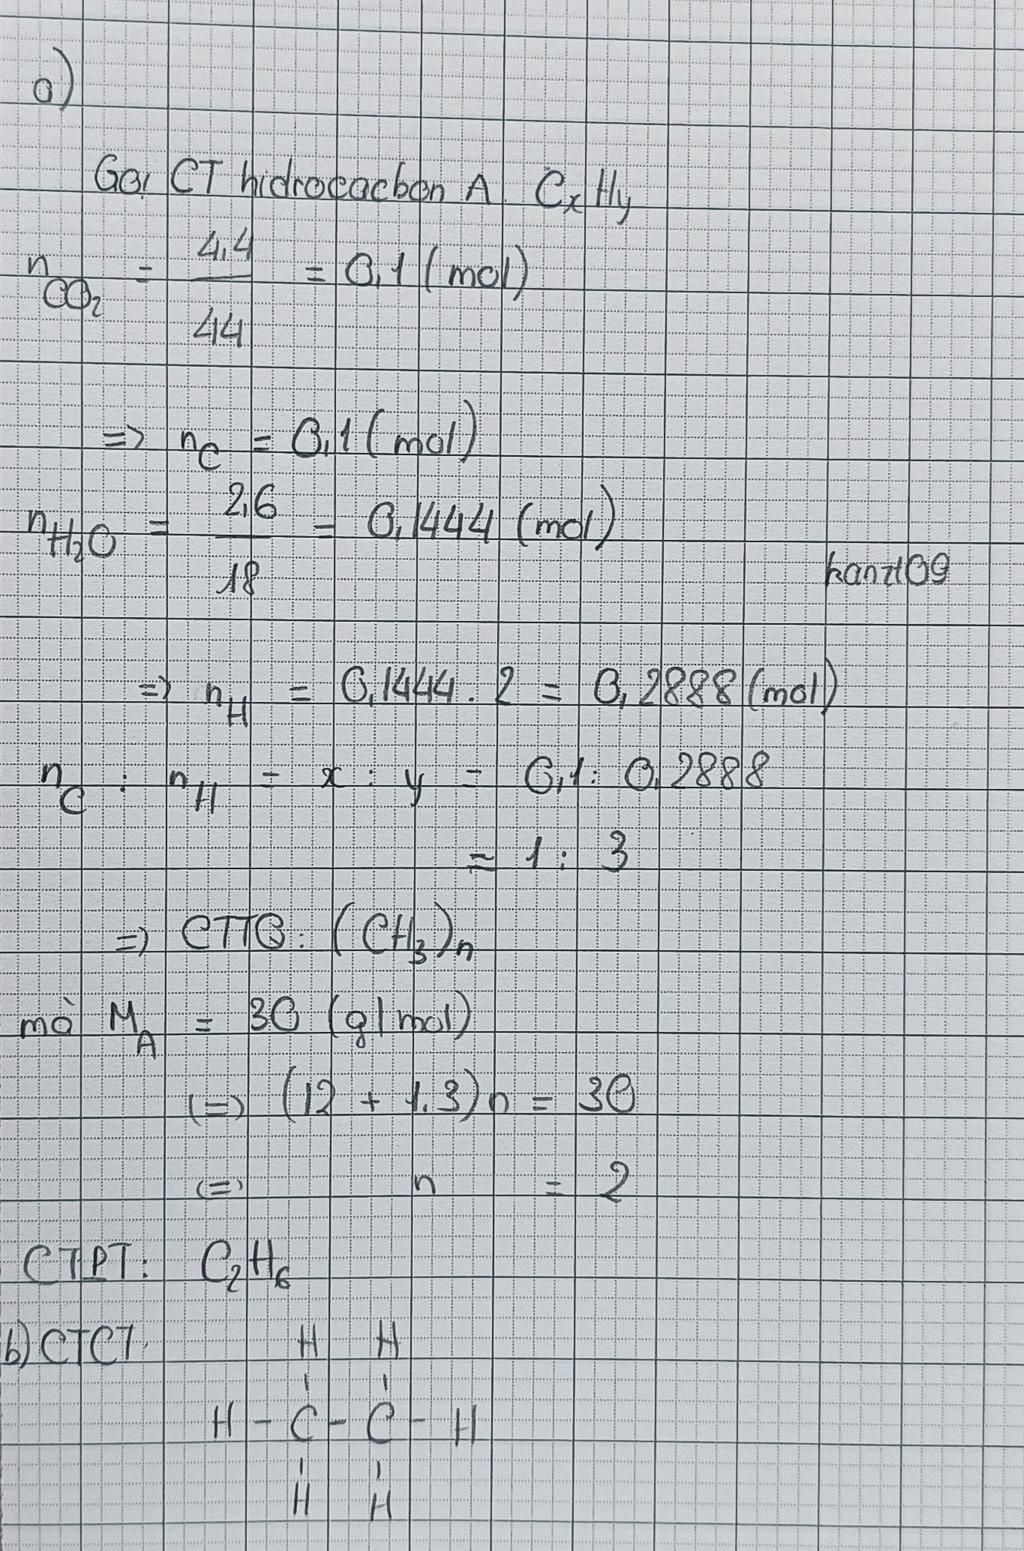 a)
Gọi CT hidrocacbon A CxHy
nCO2 = 4,4/44 = 0,1 (mol)
=> nC = 0,1 (mol)
nH2O = 2,6/18 = 0,1444 (mol)
hanzt09
=> nH = 0,1444 . 2 = 0,2888 (mol)
nC : nH = x : y = 0,1 : 0,2888
= 1 : 3
=> CTTQ: (CH3)n
mà MA = 30 (g/mol)
(=) (12 + 1.3)n = 30
(=) n = 2
CTPT: C2H6
b) CTCT:
H H
H - C - C - H
H H